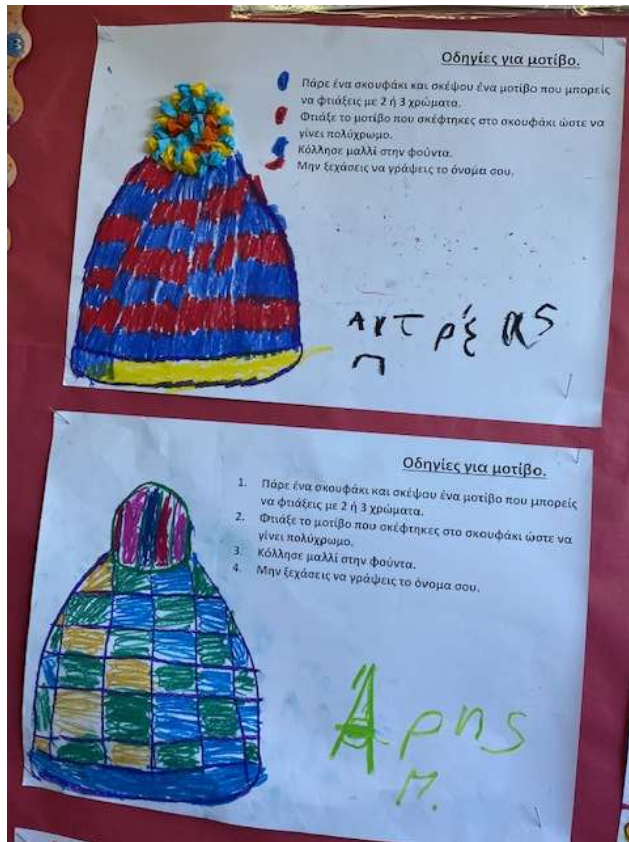 Οδηγίες για μοτίβο.
Πάρε ένα σκουφάκι και σκέψου ένα μοτίβο που μπορείς
να φτιάξεις με 2 ή 3 χρώματα.
Φτιάξε το μοτίβο που σκέφτηκες στο σκουφάκι ώστε να
γίνει πολύχρωμο.
Κόλλησε μαλλί στην φούντα.
Μην ξεχάσεις να γράψεις το όνομα σου.
Αντρέας
Π
Οδηγίες για μοτίβο.
1. Πάρε ένα σκουφάκι και σκέψου ένα μοτίβο που μπορείς
να φτιάξεις με 2 ή 3 χρώματα.
2. Φτιάξε το μοτίβο που σκέφτηκες στο σκουφάκι ώστε να
γίνει πολύχρωμο.
3. Κόλλησε μαλλί στην φούντα.
4. Μην ξεχάσεις να γράψεις το όνομα σου.
Άρης
Μ.